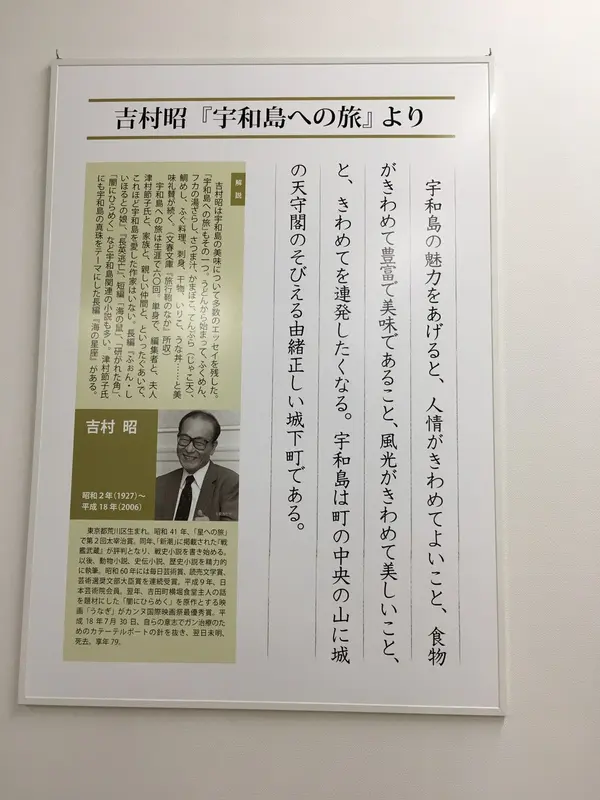 吉村昭『宇和島への旅』より
宇和島の魅力をあげると、人情がきわめてよいこと、食物
がきわめて豊富で美味であること、風光がきわめて美しいこと、
と、きわめてを連発したくなる。宇和島は町の中央の山に城
の天守閣のそびえる由緒正しい城下町である。
解説
吉村昭は宇和島の美味について多数のエッセイを残した。
『宇和島への旅』もその一つ。うどんから始まって、ふくめん、
フカの湯ざらし、さつま汁、かまぼこ、てんぷら（じゃこ天）、
鯛めし、ふぐ料理、刺身、干物、いりこ、うな丼……と美
味礼賛が続く。（文春文庫『旅行鞄のなか』所収）
宇和島への旅は生涯で六〇回。単身で、編集者と、夫人
津村節子氏と、家族と、親しい仲間と、といったぐあいで、
これほど宇和島を愛した作家はいない。長編『ふぉん・し
いほるとの娘』、『長英逃亡』、短編「海の鼠」、「研がれた角」、
「闇にひらめく」など宇和島関連の小説も多い。津村節子氏
にも宇和島の真珠をテーマにした長編『海の星座』がある。
吉村 昭
昭和２年（1927）～
平成 18 年（2006）
東京都荒川区生まれ。昭和 41 年、「星への旅」
で第２回太宰治賞。同年、「新潮」に掲載された『戦
艦武蔵』が評判となり、戦史小説を書き始める。
以後、動物小説、史伝小説、歴史小説を精力的
に執筆。昭和 60 年には毎日芸術賞、読売文学賞、
芸術選奨文部大臣賞を連続受賞。平成９年、日
本芸術院会員。翌年、吉田町横堀食堂主人の話
を題材にした「闇にひらめく」を原作とする映
画「うなぎ」がカンヌ国際映画祭最優秀賞。平
成 18 年７月 30 日、自らの意志でガン治療のた
めのカテーテルポートの針を抜き、翌日未明、
死去。享年 79。